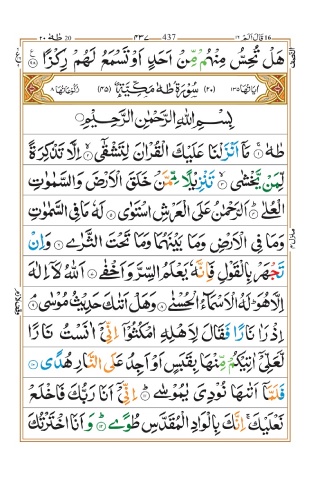 قال الم ١٦ 437 ٤٣٧ طٰهٰ ٢٠
هَلْ تُحِسُّ مِنْهُمْ مِّنْ اَحَدٍ اَوْ تَسْمَعُ لَهُمْ رِكْزًا
اٰیَاتُهَا ١٣٥ (٢٠) سُوْرَةُ طٰهٰ مَكِّیَّةٌ (٤٥) رُكُوْعَاتُهَا ٨
بِسْمِ اللّٰهِ الرَّحْمٰنِ الرَّحِیْمِ
طٰهٰ ۚ مَاۤ اَنْزَلْنَا عَلَیْكَ الْقُرْاٰنَ لِتَشْقٰۤی ۙ اِلَّا تَذْكِرَةً
لِّمَنْ یَّخْشٰی ۙ تَنْزِیْلًا مِّمَّنْ خَلَقَ الْاَرْضَ وَ السَّمٰوٰتِ
الْعُلٰی ؕ اَلرَّحْمٰنُ عَلَی الْعَرْشِ اسْتَوٰی لَهٗ مَا فِی السَّمٰوٰتِ
وَ مَا فِی الْاَرْضِ وَ مَا بَیْنَهُمَا وَ مَا تَحْتَ الثَّرٰی وَ اِنْ
تَجْهَرْ بِالْقَوْلِ فَاِنَّهٗ یَعْلَمُ السِّرَّ وَ اَخْفٰی اَللّٰهُ لَاۤ اِلٰهَ
اِلَّا هُوَ ؕ لَهُ الْاَسْمَآءُ الْحُسْنٰی وَ هَلْ اَتٰىكَ حَدِیْثُ مُوْسٰی ۘ
اِذْ رَاٰ نَارًا فَقَالَ لِاَهْلِهِ امْكُثُوْۤا اِنِّیْۤ اٰنَسْتُ نَارًا
لَّعَلِّیْۤ اٰتِیْكُمْ مِّنْهَا بِقَبَسٍ اَوْ اَجِدُ عَلَی النَّارِ هُدًی
فَلَمَّاۤ اَتٰىهَا نُوْدِیَ یٰمُوْسٰی ؕ اِنِّیْۤ اَنَا رَبُّكَ فَاخْلَعْ
نَعْلَیْكَ ۚ اِنَّكَ بِالْوَادِ الْمُقَدَّسِ طُوًی ؕ وَ اَنَا اخْتَرْتُكَ